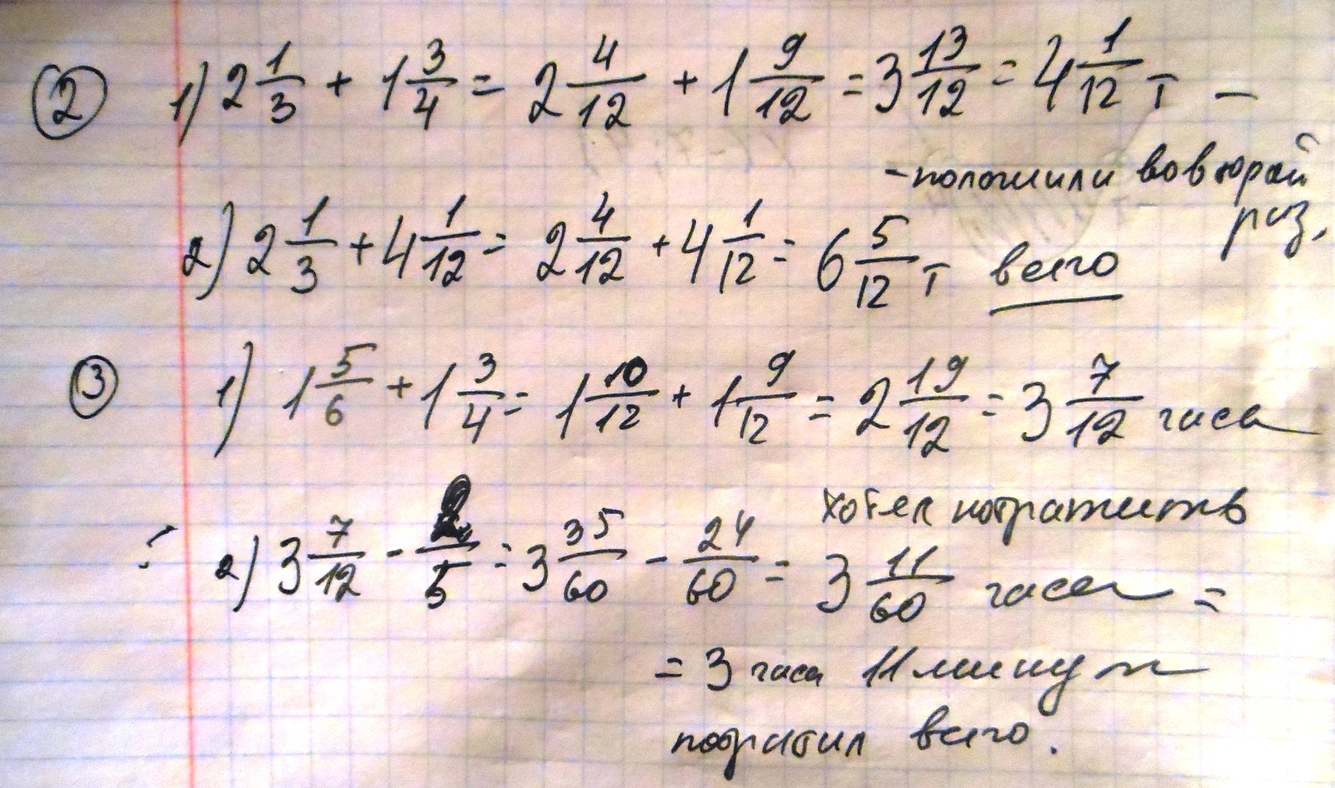 ② 1) 2 1/3 + 1 3/4 = 2 4/12 + 1 9/12 = 3 13/12 = 4 1/12 т –
- положили во второй
раз.
2) 2 1/3 + 4 1/12 = 2 4/12 + 4 1/12 = 6 5/12 т всего
③ 1) 1 5/6 + 1 3/4 = 1 10/12 + 1 9/12 = 2 19/12 = 3 7/12 часа
хотел потратить
2) 3 7/12 - 2/5 = 3 35/60 - 24/60 = 3 11/60 часа =
= 3 часа 11 минут
потратил всего.